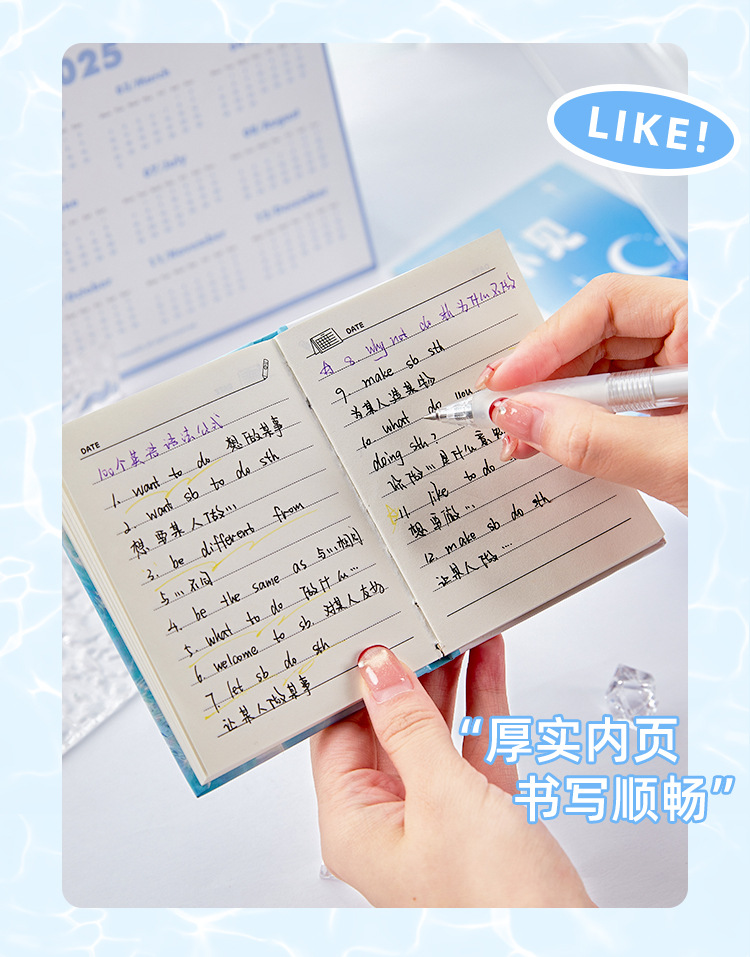 2025
03.March
07.July
08.August
11.November
12.December
October
LIKE!
小见
DATE
100个英语语法公式
1. want to do 想做某事
2. want sb to do sth
想要某人做…
3. be different from
与…不同
4. be the same as 与…相同
5. what to do 做什么…
6. welcome to sb. 对某人友好
7. let sb do sth
让某人做某事
DATE
8. why not do sth 为什么不做
9. make sb sth
为某人造某物
10. what do you
doing sth?
你做…是什么意思
11. like to do
想要做…
12. make sb do sth
让某人做…
“厚实内页
书写顺畅”